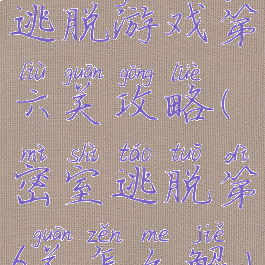 逃脱游戏第
liù guān gōng lüè
六关攻略(
mì shì táo tuō dì
密室逃脱第
guān zěn me jiě
6关怎么解)